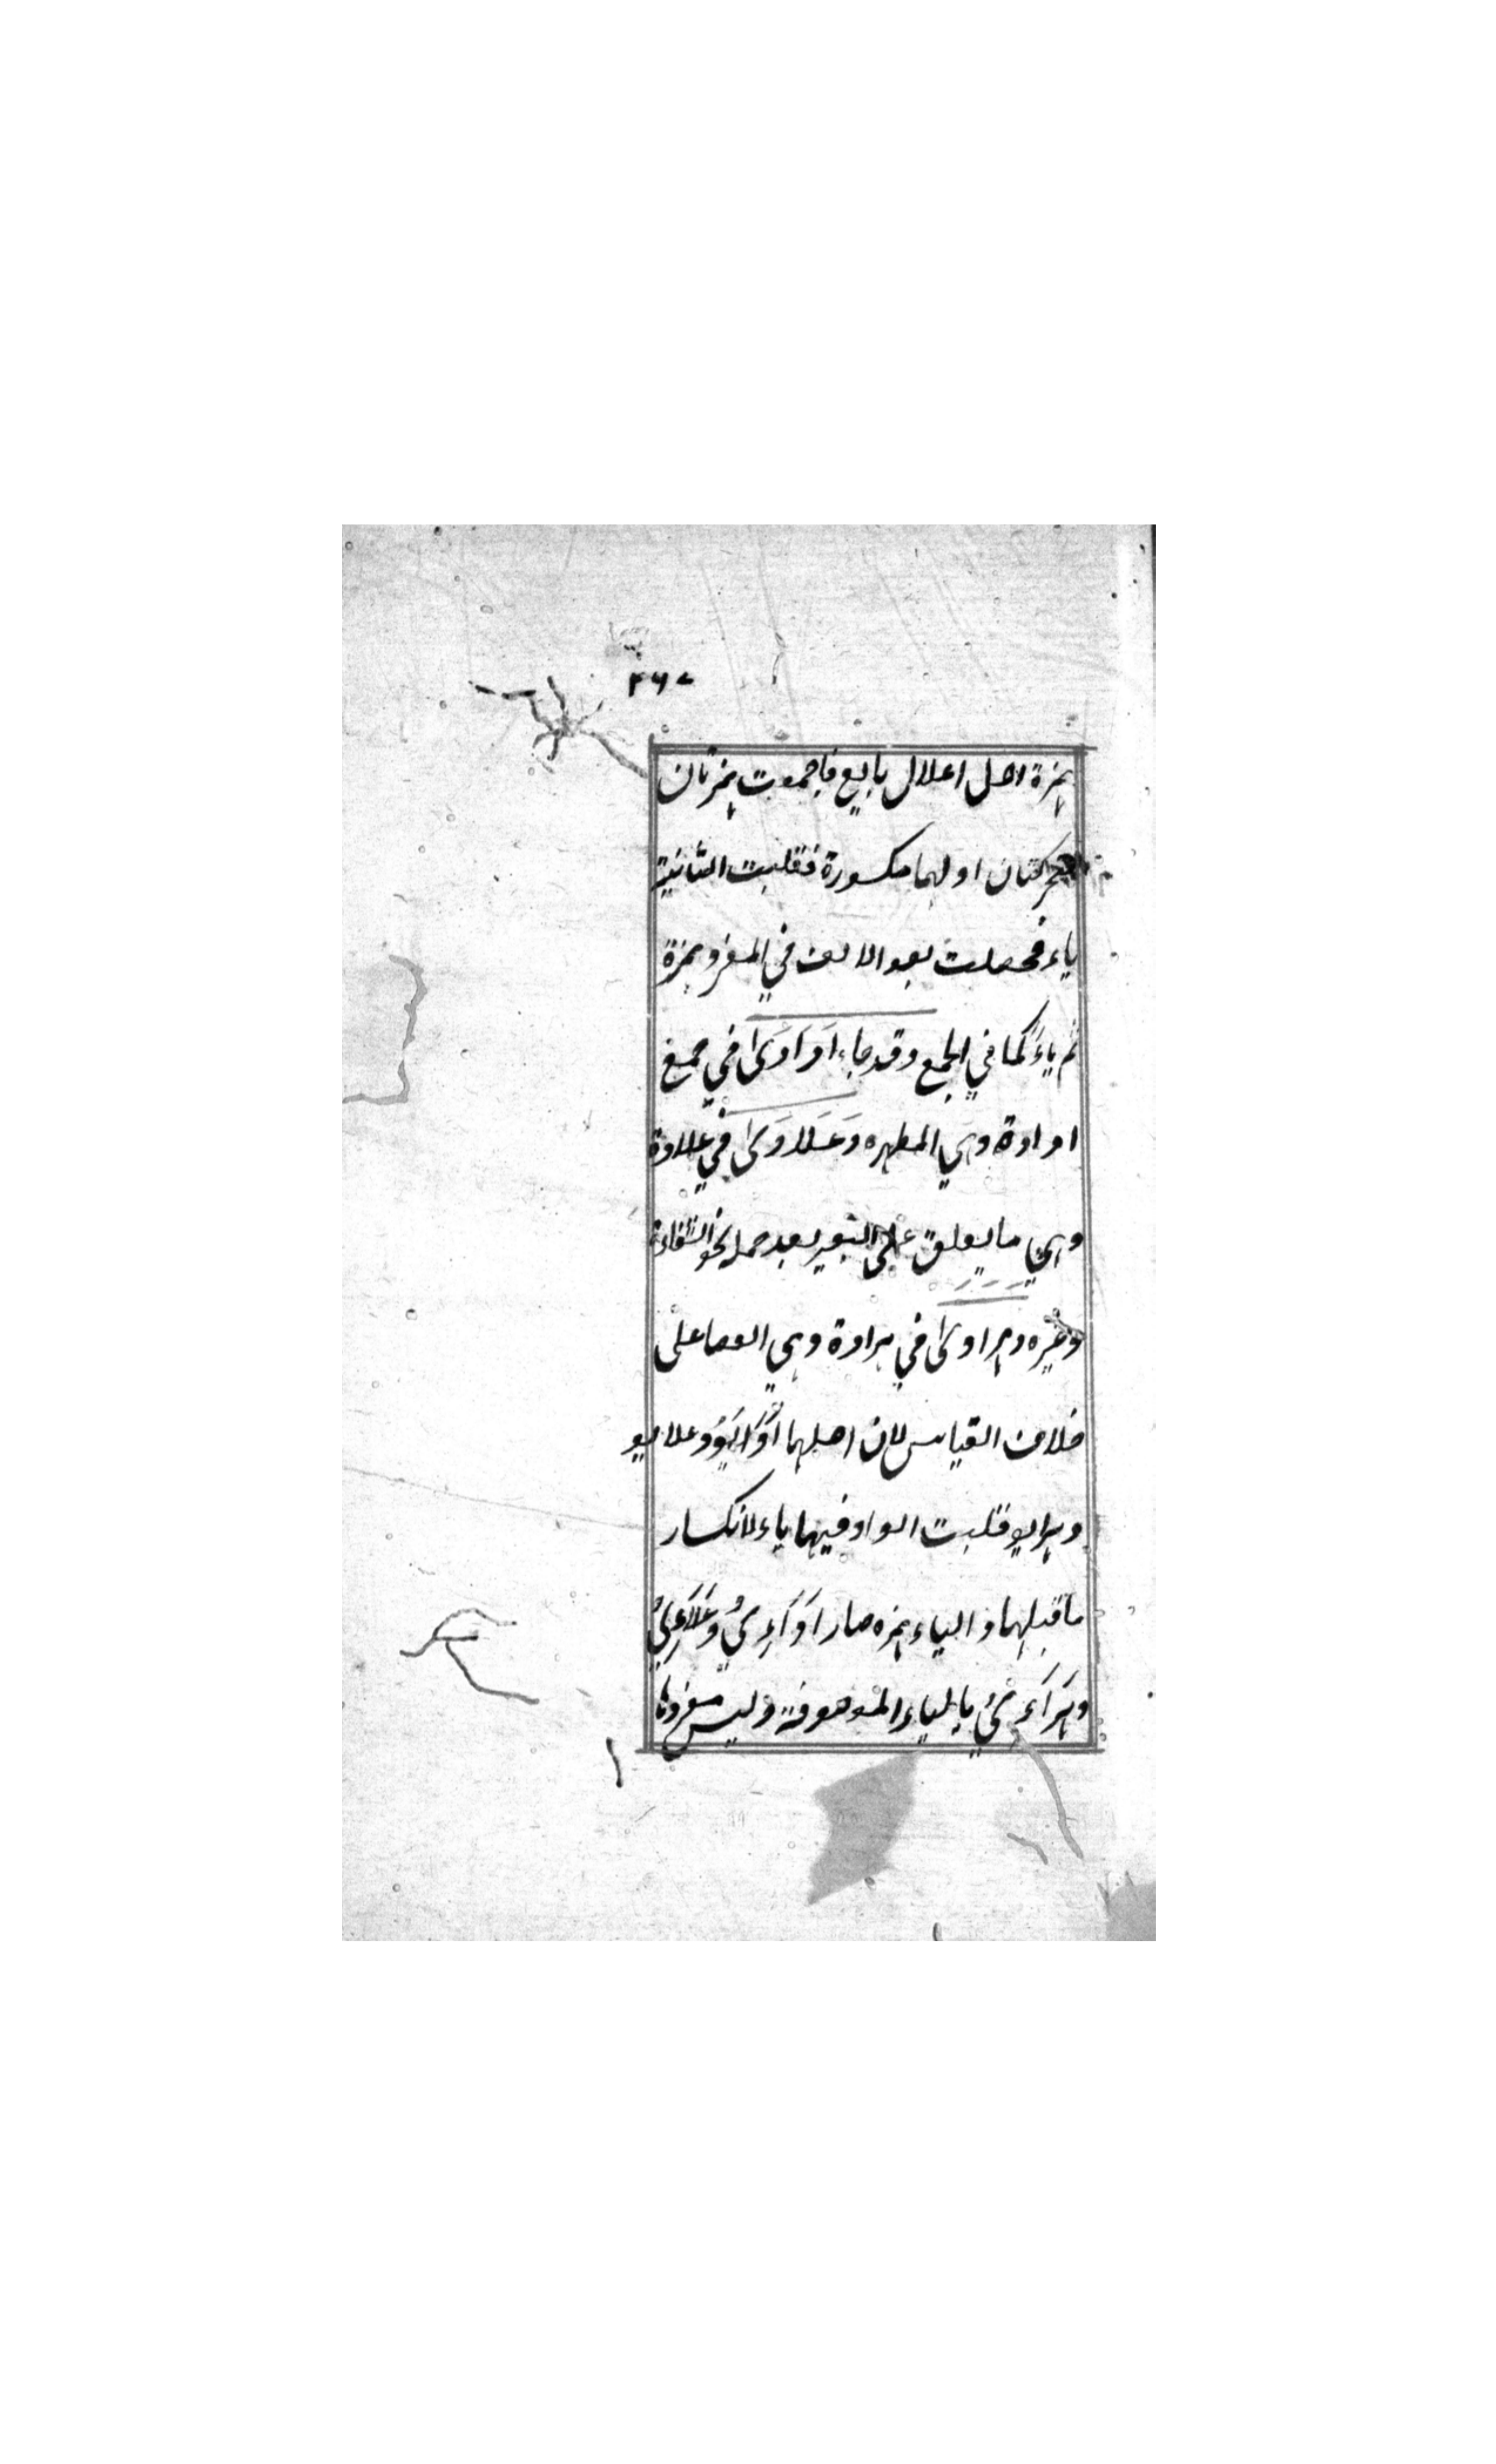 ۴۶۷
همزة اصل اعلال بايع فاجتمعت همزتان
متحركتان اولهما مكسورة فقلبت الثانية
ياء فحصلت بعد الالف في المفرد همزة
ثم ياءً كما في الجمع وقد جاء اَدَاوَىٰ في جمع
اداوة وهي المطهره وَعَلَاوَىٰ في علاوة
وهي ما يعلق على البعير بعد حمله نحو السقاء
وغيره وهراوىٰ في هراوة وهي العصا على
خلاف القياس لان اصلهما اَدَاىِٕوُ وعلايو
وهرايو قلبت الواو فيها ياء لانكسار
ما قبلهما و الياء همزه صار اَدَاءِىُ وَعَلَاءِىُ
وهَرَاءِىُ بالياء الموصوفة وليس مفردها